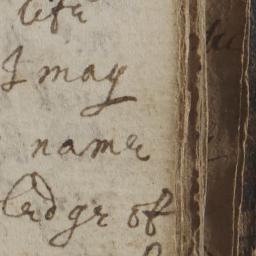 life
I may
name
ledge of